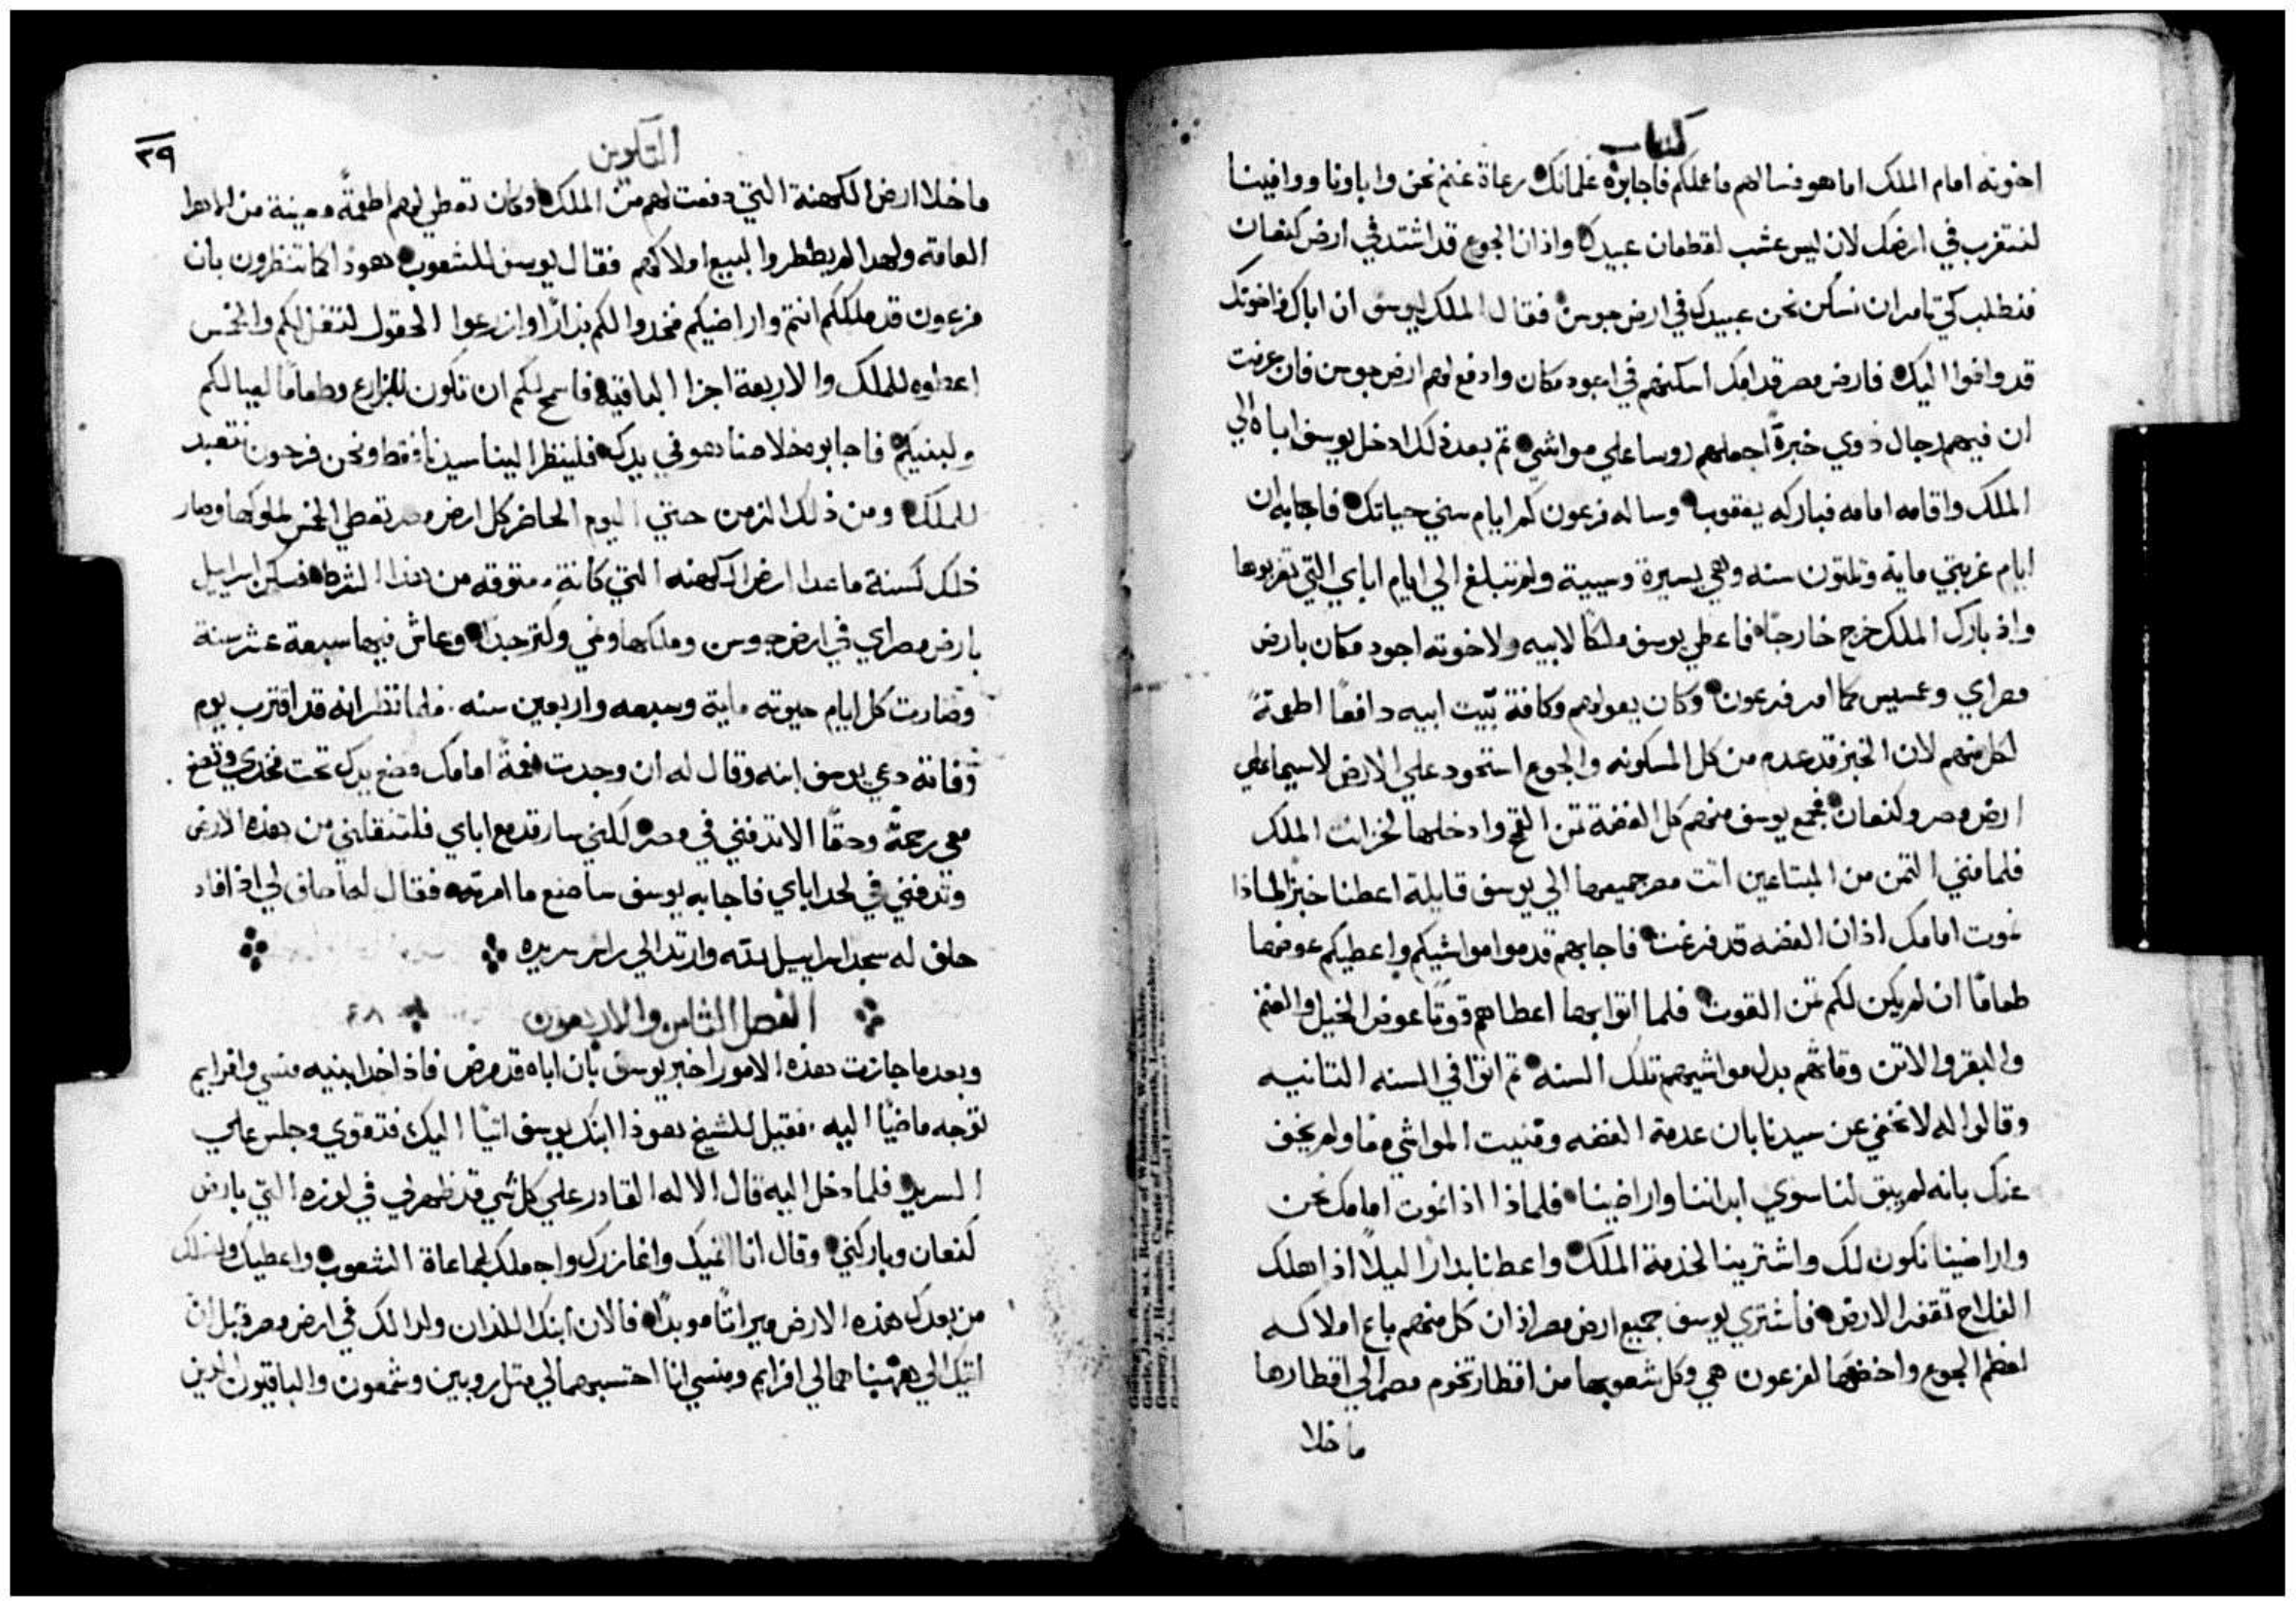 كتاب
اخوته امام الملك اما هو فسالهم ما عملكم فاجابوه غلمانك رعاة غنم نحن واباونا ووافينا
لنتغرب في ارضك لان ليس عشب لقطعان عبيدك واذ ان الجوع قد اشتد في ارض كنعان
فنطلب كي تامر ان نسكن نحن عبيدك في ارض جوسن فقال الملك ليوسف ان اباك واخوتك
قد وافوا اليك فارض مصر قدامك اسكنهم في اجود مكان وادفع لهم ارض جوسن فان عرفت
ان فيهم رجال ذوي خبرةً اجعلهم روسا علي مواشي تم بعد ذلك ادخل يوسف اباه الي
الملك واقامه امامه فباركه يعقوب وساله فرعون كم ايام سني حياتك فاجابه ان
ايام غربتي ماية وتلتون سنه وهي يسيرة وسيية ولم تبلغ الي ايام اباي التي تغربوها
واذ بارك الملك خرج خارجًا فاعطي يوسف ملكًا لابيه ولاخوته اجود مكان بارض
مصراي وعسيس كما امر فرعون وكان يعولهم وكافة بيت ابيه دافعًا اطعمةً
لكل منهم لان الخبز قد عدم من كل المسكونه والجوع استحود علي الارض لاسيما علي
ارض مصر وكنعان فجمع يوسف منهم كل الفضة تمن القمح وادخلها لخزانت الملك
فلما فني التمن من المبتاعين اتت مصر جميعها الي يوسف قايلة اعطنا خبزًا لماذا
نموت امامك اذ ان الفضه قد فرغت فاجابهم قدموا مواشيكم واعطيكم عوضها
طعامًا ان لم يكن لكم تمن القوت فلما اتوا بها اعطاهم قوتًا عوض الخيل والغنم
والبقر والاتن وقاتهم بدل مواشيهم تلك السنه تم اتوا في السنه التانيه
وقالوا له لا نخفي عن سيدنا بان عدمة الفضه وفنيت المواشي معا ولم يخف
عنك بانه لم يبق لنا سوي ابداننا واراضينا فلماذا اذا نموت امامك نحن
واراضينا نكون لك واشترينا لخدمة الملك واعطنا بدارًا ليلاً اذا هلك
الفلاح تقفر الارض فاشتري يوسف جميع ارض مصر اذ ان كل منهم باع املاكه
لعظم الجوع واخضعها لفرعون هي وكل شعوبها من اقطار تخوم مصر الي اقطارها
ما خلا
التكوين
٣٩
ما خلا ارض الكهنة التي دفعت لهم من الملك وكان تعطي لهم اطعمةً معينة من الاهرا
العامه ولهدا لم يططروا لبيع املاكهم فقال يوسف للشعوب هودا كما تنظرون بان
فرعون قد ملككم انتم واراضيكم فخدوا لكم بدارًا وازرعوا الحقول لتتغل لكم والخمس
اعطوه للملك والاربعة اجزا الباقيه فاسمح لكم ان تكون للزارع وطعامًا لعيالكم
ولبنيكم فاجابوه خلاصنا هو في يدك فلينظر الينا سيدنا فقط ونحن فرحون نتعبد
للملك ومن ذلك الزمن حتي اليوم الحاضر كل ارض مصر تعطي الخمس لملوكها وصار
ذلك كسنة ماعدا ارض الكهنه التي كانة معتوقه من هذا الشرط فسكن اسراييل
بارض مصراي في ارض جوسن وملكها ونمي وكتر جدًا وعاش فيها سبعة عشر سنة
وصارت كل ايام حيوته ماية وسبعه واربعين سنه. فلما نظر انه قد اقترب يوم
وفاته دعي يوسف ابنه وقال له ان وجدت نعمةً امامك فضع يدك تحت فخدي وتصنع
معي رحمةً وحقًا الا تدفني في مصر لكنني سارقد مع اباي فلتنقلني من هذه الارض
وتدفني في لحد اباي فاجابه يوسف ساصنع ما امرته فقال لها حلف لي اذًا فاذ
حلف له سجد اسراييل لله وارتد الي راس سريره
الفصل التامن والاربعون ٤٨
وبعد ما جازت هذه الامور اخبر يوسف بان اباه قد مرض فاذ اخد ابنيه منسي وافرايم
توجه ماضيًا اليه. فقيل للشيخ هوذا ابنك يوسف اتيًا اليك فتقوي وجلس علي
السرير فلما دخل اليه قال الاله القادر علي كل شي قد ظهر لي في لوزه التي بارض
كنعان وباركني وقال انا انميك واغازرك واجعلك لجماعاة الشعوب واعطيك ولنسلك
من بعدك هذه الارض ميراتًا موبدًا فالان ابنك اللذان ولدا لك في ارض مصر قبل ان
اتيك الي ههنا هما لي افرايم ومنسي انا احتسبهما لي متل روبين وشمعون والباقيون الدين